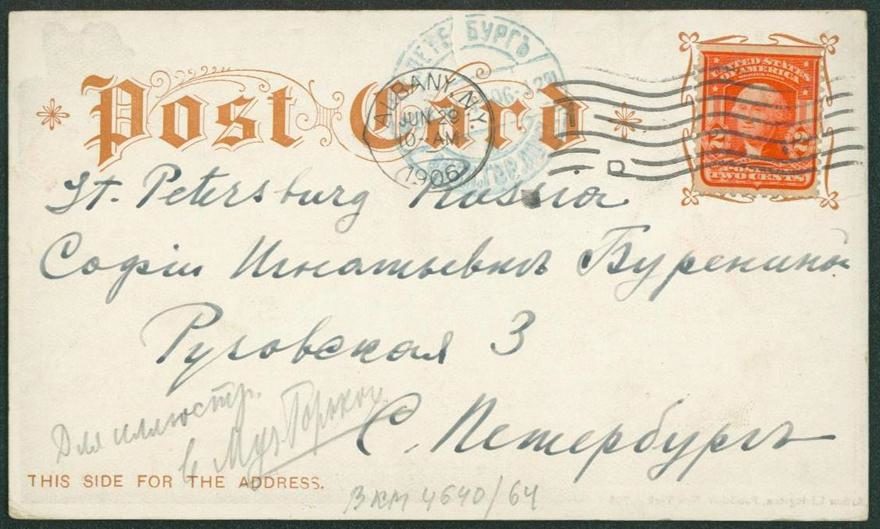 Post Card
ПЕТЕРБУРГЪ
ALBANY, N.Y.
JUN 29
10 AM
1906
D
UNITED STATES
OF AMERICA
2 2
POSTAGE
TWO CENTS
St. Petersburg Russia
Софiи Игнатьевнѣ Буренинѣ
Рузовская 3
С. Петербургъ
Для иллюстр.
в Муз Горьког
THIS SIDE FOR THE ADDRESS.
ВКМ 4640/64